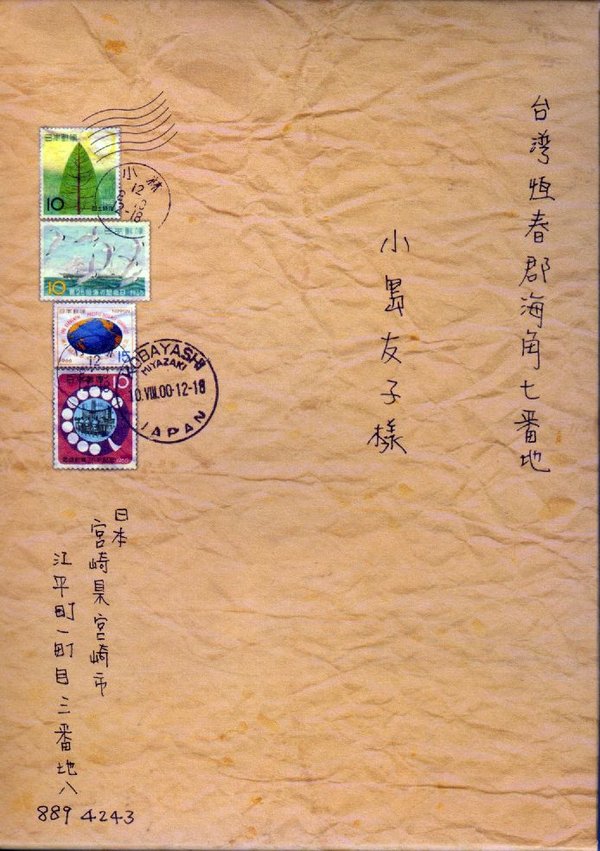 台湾恆春郡海角七番地
小島友子様
日本郵便
10
小林
12
10
15
日本郵便
NIPPON
日本郵便
15
KOBAYASHI
MIYAZAKI
10.VIII.00-12-18
JAPAN
日本
宮崎県宮崎市
江平町一町目三番地八
889 4243